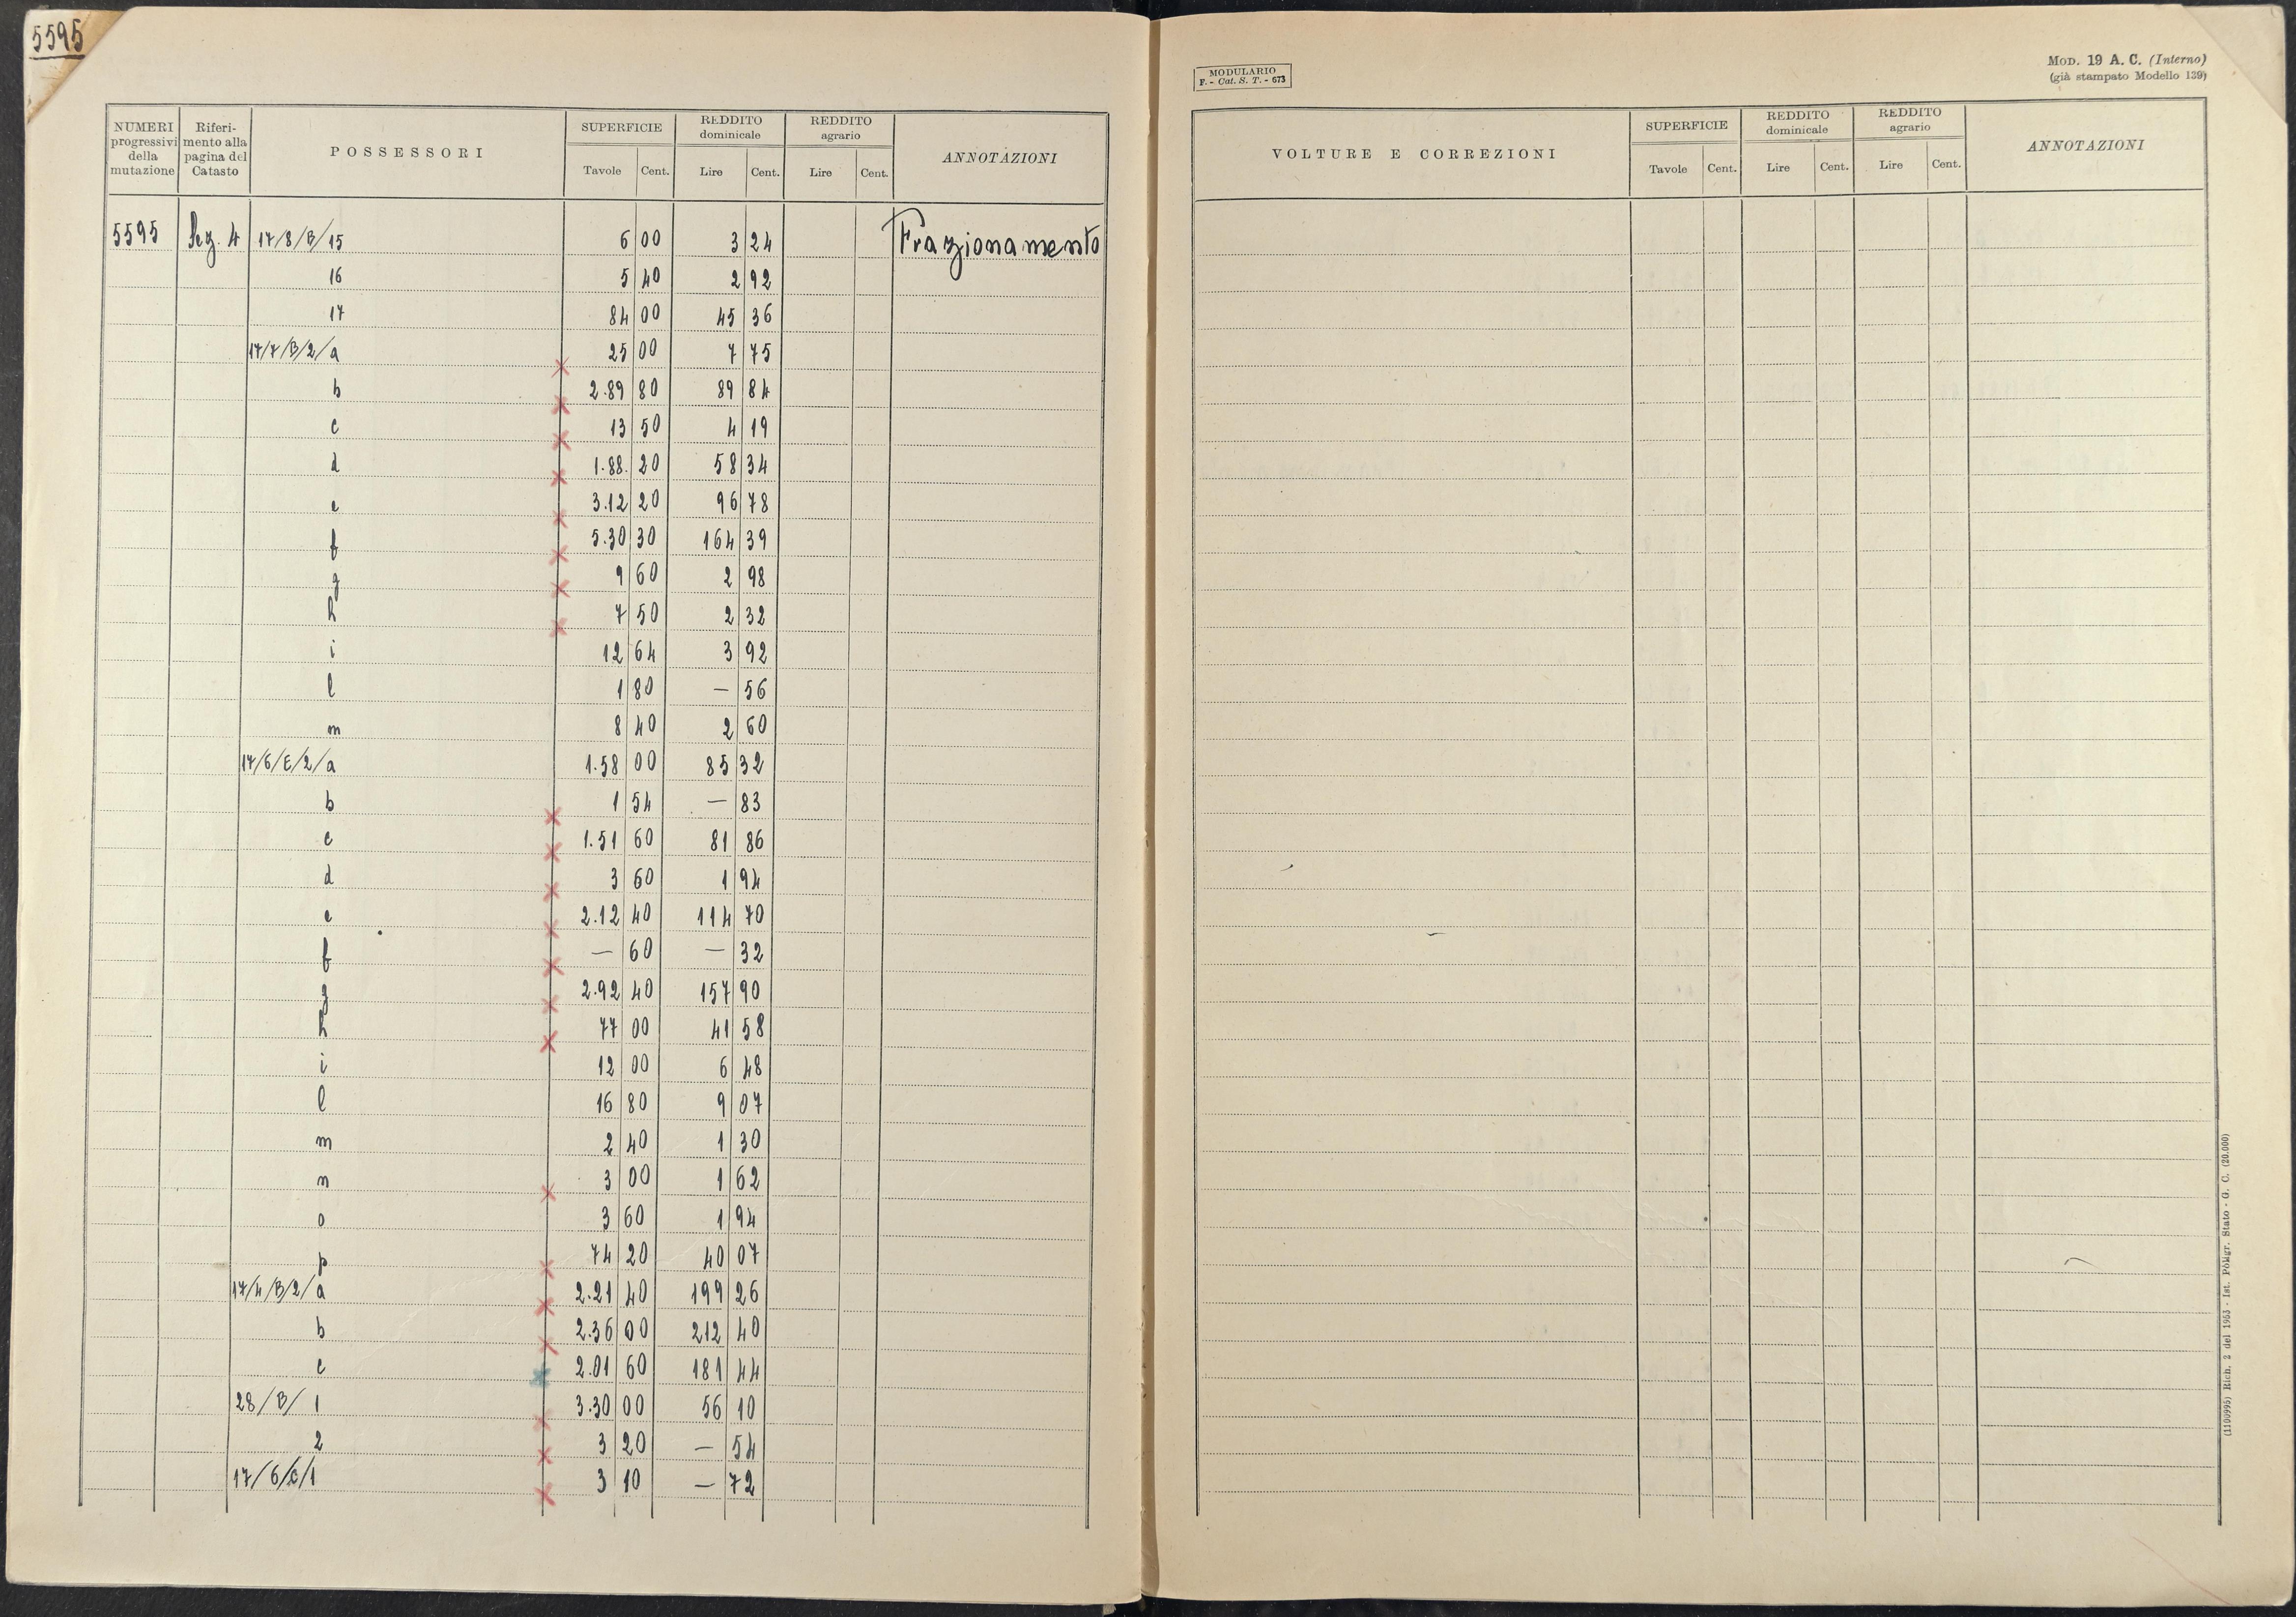 5595
NUMERI progressivi della mutazione | Riferimento alla pagina del Catasto | POSSESSORI | SUPERFICIE Tavole Cent. | REDDITO dominicale Lire Cent. | REDDITO agrario Lire Cent. | ANNOTAZIONI
5595 Seg. 4 17/8/B/15 6 00 3 24 Frazionamento
16 5 40 2 92
17 84 00 45 36
17/7/B/2/a 25 00 7 75
b 2.89 80 89 84
c 13 50 4 19
d 1.88. 20 58 34
e 3.12 20 96 78
f 5.30 30 164 39
g 9 60 2 98
h 7 50 2 32
i 12 64 3 92
l 1 80 — 56
m 8 40 2 60
17/6/E/2/a 1.58 00 85 32
b 1 54 — 83
c 1.51 60 81 86
d 3 60 1 94
e 2.12 40 114 70
f — 60 — 32
g 2.92 40 157 90
h 77 00 41 58
i 12 00 6 48
l 16 80 9 07
m 2 40 1 30
n 3 00 1 62
o 3 60 1 94
p 74 20 40 07
17/4/B/2/a 2.21 40 199 26
b 2.36 00 212 40
c 2.01 60 181 44
28/B/1 3.30 00 56 10
2 3 20 — 54
17/6/C/1 3 10 — 72
MODULARIO
F. - Cat. S. T. - 673
MOD. 19 A. C. (Interno)
(già stampato Modello 139)
VOLTURE E CORREZIONI | SUPERFICIE Tavole Cent. | REDDITO dominicale Lire Cent. | REDDITO agrario Lire Cent. | ANNOTAZIONI
(1100995) Rich. 2 del 1953 - Ist. Poligr. Stato - G. C. (20.000)